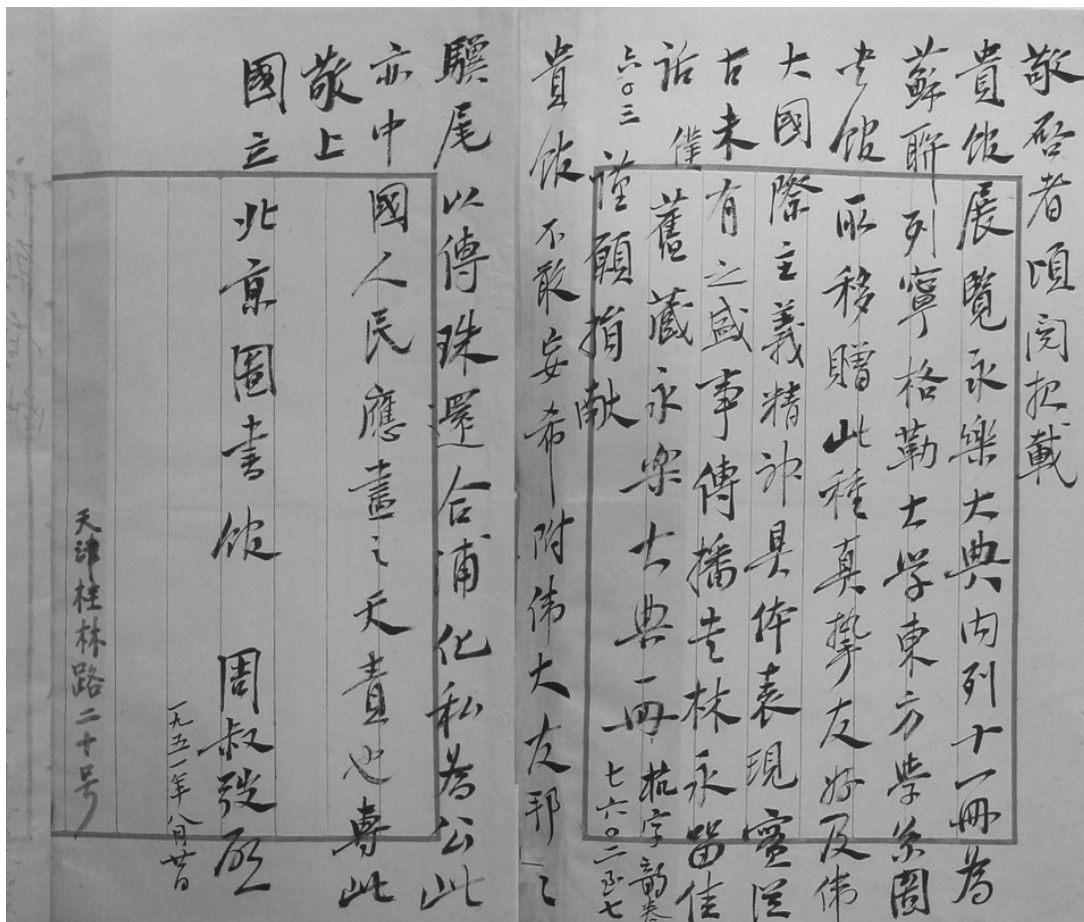 敬啓者頃閱报載
貴馆展覽永樂大典内列十一冊為
蘇聯列寧格勒大学東方学系圖
书馆所移贈此種真摯友好及伟
大國際主義精神具体表現實從
古未有之盛事傳播士林永留佳
話僕舊藏永樂大典一冊杭字韻卷七六〇二至七
六〇三謹願捐献
貴馆不敢妄希附伟大友邦之
驥尾以傳珠還合浦化私為公此
亦中國人民應盡之天責也專此
敬上
國立北京圖書馆 周叔弢啟
一九五一年八月廿日
天津桂林路二十号